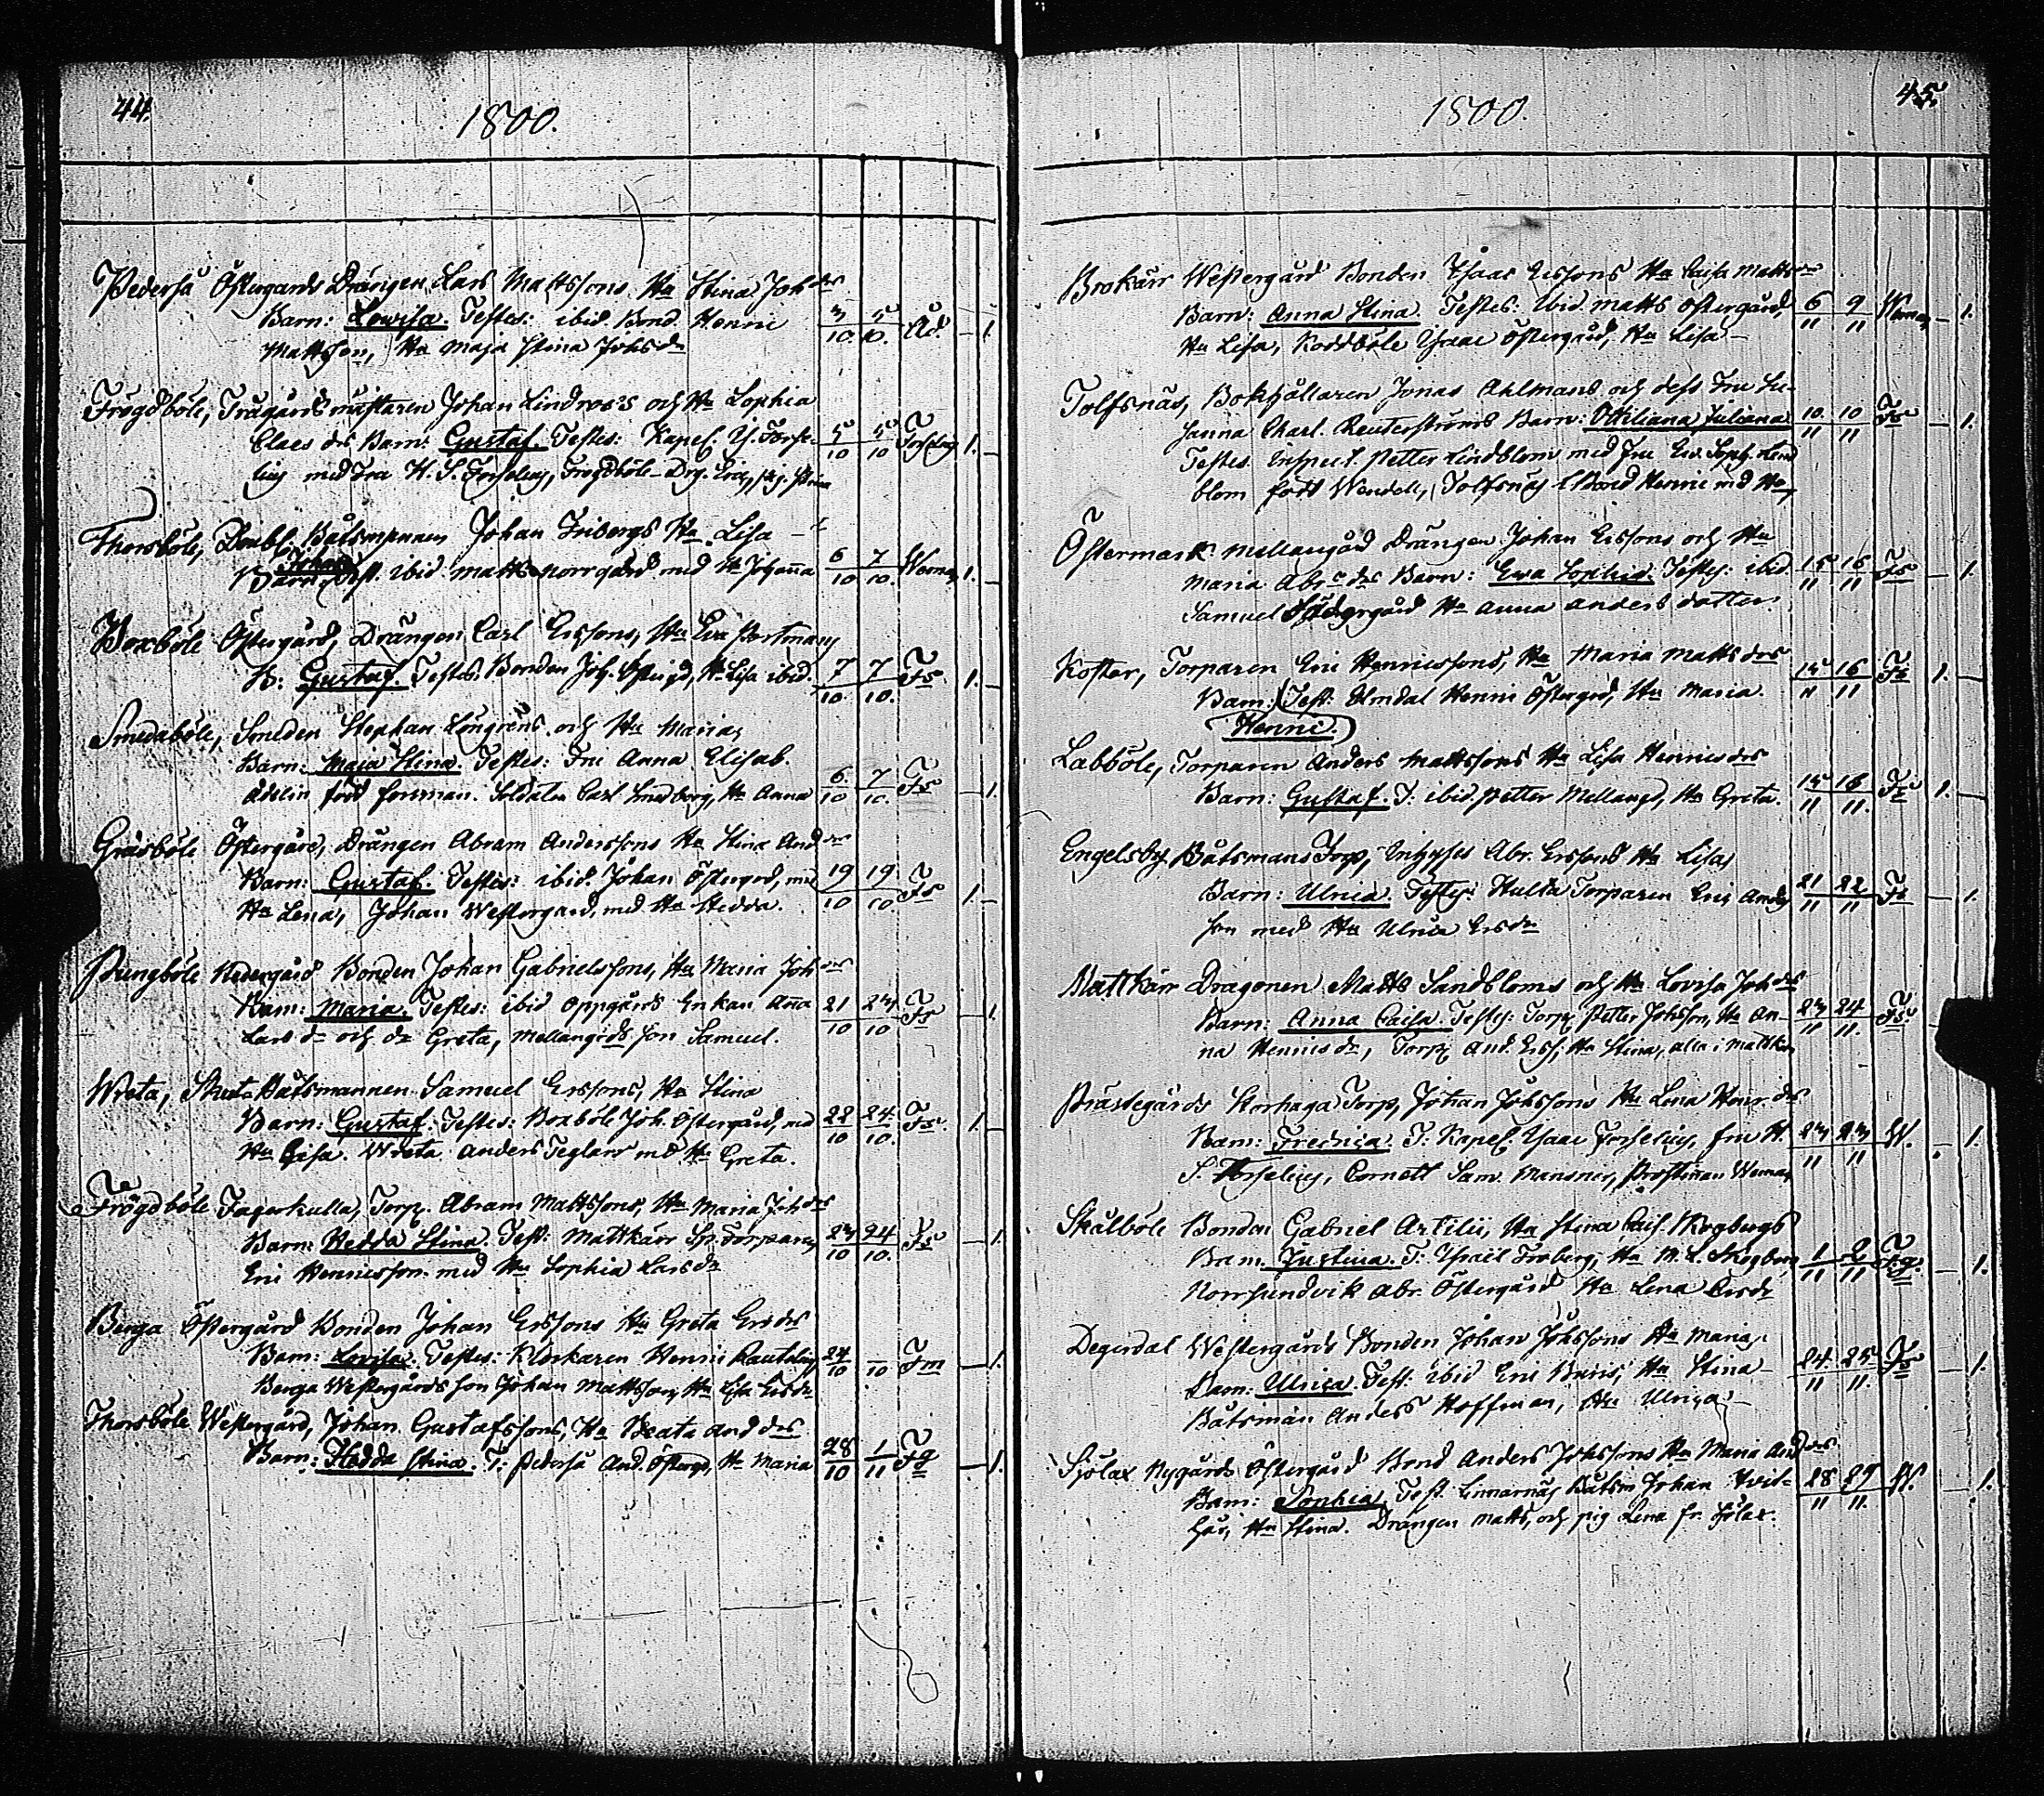 44.
1800.
Pederså Östergards Drängen Lars Mattssons Hu Stina Johsdr
Barn: Lovisa. Testes: ibid. Bond. Henric 3/10 5/10 Åd. – 1.
Mattsson, Hu Maja Stina Johsdr
Frögdböle, Trägårdsmästaren Johan Lindroos's och Hu Sophia
Claes dr Barn: Gustaf. Testes: Kapel. I. Forse- 5/10 5/10 1. –
lius med Fru H. S. Forselius, Frögdböle Drg. Eric, pig. Stina
Thorsböle, Doubl. Båtsmannen Johan Fribergs Hu Lisa –
Johan
Barn: Test. ibid Matts Norrgård med Hu Johanna 6/10 7/10. 1. –
Boxböle Östergård, Drängen Carl Erssons, Hu Eva Portmans
B: Gustaf. Testes: Bonden Joh. Östergd, Hu Lisa ibid. 7/10. 7/10. Fs 1. –
Smedaböle, Smeden Stephan Löngrens och Hu Maria,
Barn: Maja Stina. Testes: Fru Anna Elisab.
Ådelin född Forsman. Soldaten Carl Smedberg, Hu Anna 6/10 7/10. Fs – 1.
Gräsböle Östergård, Drängen Abram Anderssons Hu Stina And dr
Barn: Gustaf. Testes: ibid. Johan Östergrd, med 19/10 19/10. Fs 1. –
Hu Lena, Johan Westergard, med Hu Hedda.
Pungböle Nedergård Bonden Johan Gabrielssons, Hu Maria Joh dr
Barn: Maria. Testes: ibid Oppgårds Enkan Aña 21/10 23/10 Fs – 1.
Lars dr och dr Greta, Mellangrds son Samuel.
Wreta, Skuta Båtsmannen Samuel Erssons, Hu Stina
Barn: Gustaf. Testes: Boxböle Joh. Östergård, med 22/10 24/10. Fs. 1. –
Hu Lisa. Wreta Anders Teglars med Hu Greta.
Frögdböle Fagerkulla, Torp. Abram Mattssons, Hu Maria Johdr
Barn: Hedda Stina. Test: Mattkärr Sp. Torparen 23/10 24/10. Fs – 1.
Eric Henricsson med Hu Sophia Larsdr
Berga Östergård Bonden Johan Erssons Hu Greta Ersdr
Barn: Lovisa. Testes: Klockaren Henric Rautelius 24/10 –/10 Fm – 1.
Berga Westergårds son Johan Mattsson, Hu Lisa Ersdr
Thorsböle Westergård, Johan Gustafssons, Hu Beata And drs
Barn: Hedda Stina. T: Pederså And. Östergrd, Hu Maria 28/10 1/11 Fg – 1.
45.
1800.
Brokärr Westergård Bonden Isaac Erssons Hu Caisa Matts dr
Barn: Anna Stina. Testes: Ibid. Matts Östergård, 6/11 9/11 – 1.
Hu Lisa, Koddböle Isaac Östergård, Hu Lisa –
Tolfsnäs, Bokhållaren Jonas Ahlmans och dess Fru Su-
sanna Charl. Reuterströms Barn: Ottiliana Juliana 10/11 10/11 Fs – 1.
Testes Inspect. Petter Lindblom med Fru Ev. Soph. Lind
blom född Wendell, Tolfsnäs Bond Henric md Hu
Östermark Mellangård Drängen Johan Erssons och Hu
Maria Abr. dr Barn: Ewa Sophia. Testes: ibid. 15/11 16/11 Fs – 1.
Samuel Södergård Hu Anna Anders dotter.
Koster, Torparen Eric Henricssons, Hu Maria Matts drs
Barn: Test: Elmdal Henric Östergrd, Hu Maria. 15/11 16/11 Fs 1. –
Henric.
Labböle, Torparen Anders Mattssons Hu Lisa Henricsdrs
Barn: Gustaf. T: ibid. Petter Mellangd, Hu Greta. 15/11 16/11. Fs 1. –
Engelsby Båtsmans Torp, Inhyses Abr. Erssons Hu Lisa,
Barn: Ulrica. Testes: Hulta Torparen Eric Anders 21/11 22/11 Fs – 1.
son med Hu Ulrica Ersdr
Mattkärr Dragonen Matts Sandbloms och Hu Lovisa Johdrs
Barn: Anna Caisa. Testes: Torp. Petter Johsson, Hu An- 23/11 24/11. Fs. – 1.
na Henricsdr, Torp. And. Erss, Hu Stina, alla i Mattkär
Prästegårds Storhaga Torp, Johan Johssons Hu Lena Henr. drs
Barn: Fredrica. T: Kapel. Isaac Forselius, fru H. 23/11 23/11 W. – 1.
S. Forselius, Cornett Sam. Mansner, Prostinnan
Skålböle Bonden Gabriel Artelii, Hu Stina Cais. Skogbergs
Barn: Justina. T: Israel Froberg, Hu M. L. Skogberg 1/11 2/11 Fg. – 1.
Norrsundvik Abr. Östergård Hu Lena Ersdr
Degerdal Westergårds Bonden Johan Johssons Hu Maria,
Barn: Ulrica. Test: ibid Eric Bins, Hu Stina – 24/11 25/11. Fs – 1.
Båtsman Anders Hoffman, Hu Ulrica –
Sjölax Nygårds Östergård Bond Anders Johssons Hu Maria And drs
Barn: Sophia. Test. Linnarnäs Båtsm Johan 28/11 29/11. W. – 1.
Hu Stina. Drängen Matts, och pig Lena fr. Sjölax.